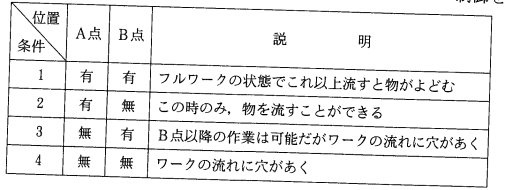 位置
条件 A点 B点 説 明
1 有 有 フルワークの状態でこれ以上流すと物がよどむ
2 有 無 この時のみ,物を流すことができる
3 無 有 B点以降の作業は可能だがワークの流れに穴があく
4 無 無 ワークの流れに穴があく